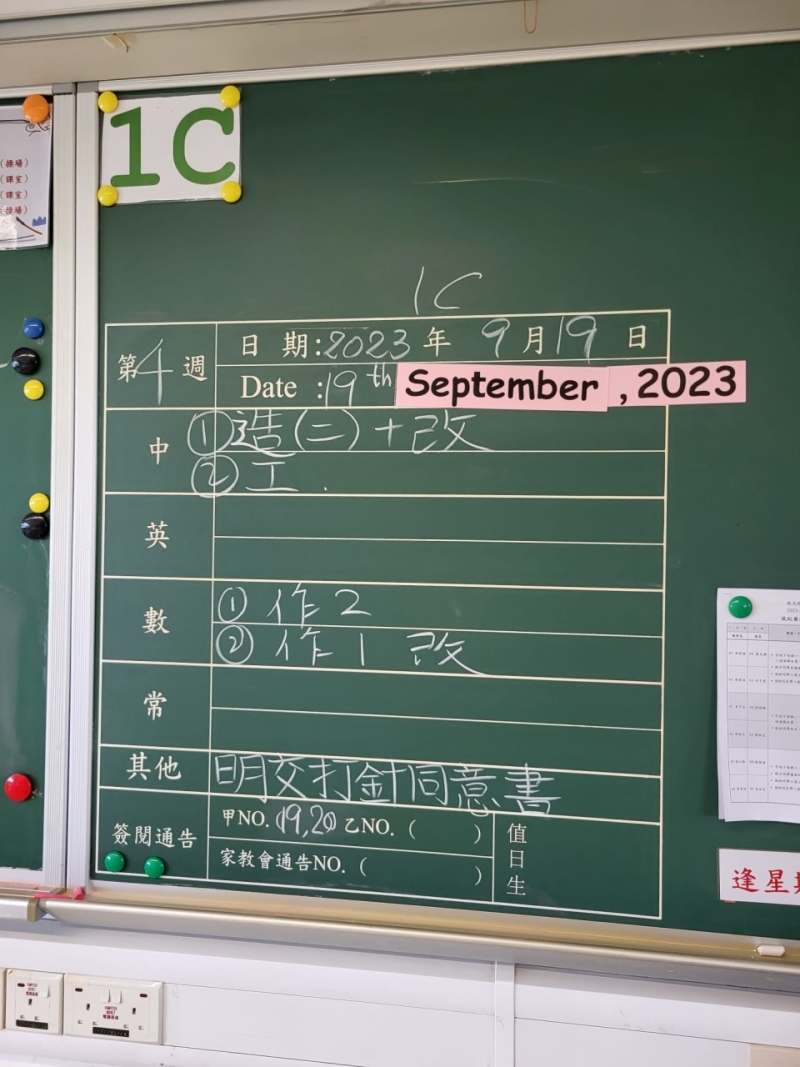 1C
(操場)
(課室)
(課室)
1C
第4週
日 期:2023年 9月19日
Date :19th September , 2023
中
①造(二)+改
②工.
英
數
① 作2
② 作1 改
常
其他
明交打針同意書
簽閱通告
甲NO.(19,20)乙NO. ( )
家教會通告NO. ( )
值日生
逢星